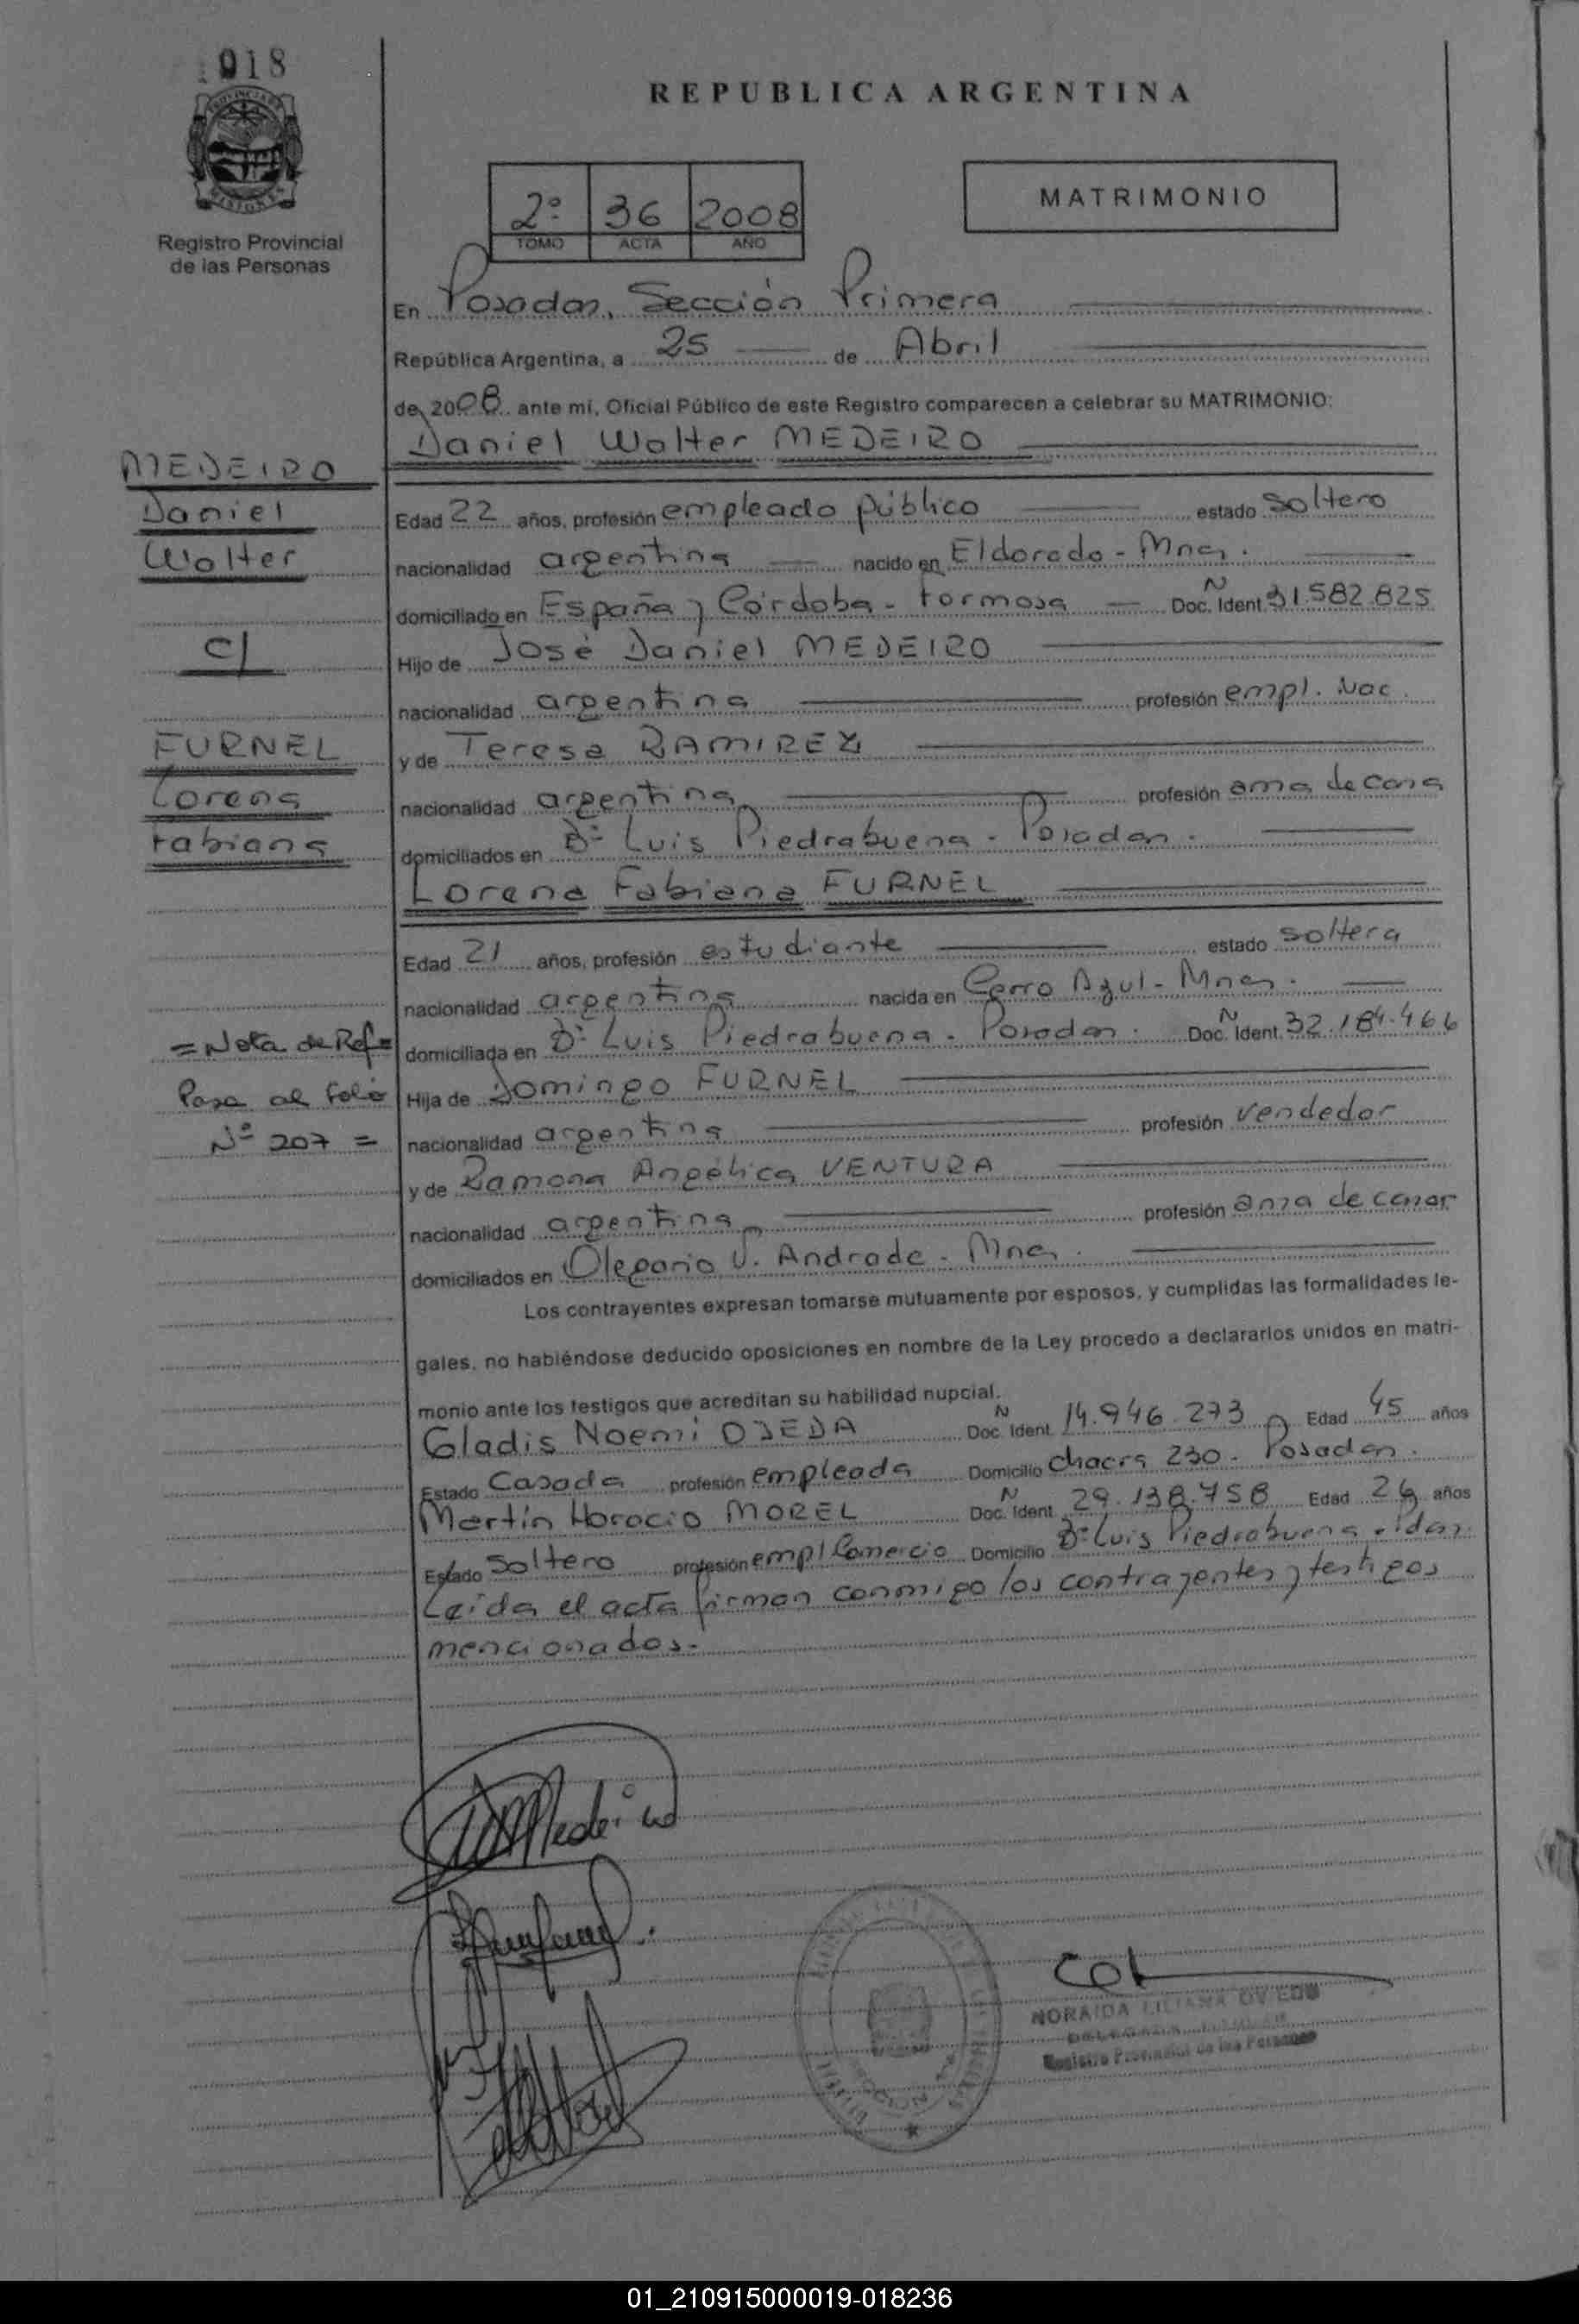 018
REPUBLICA ARGENTINA
Registro Provincial
de las Personas
2º 36 2008
TOMO ACTA AÑO
MATRIMONIO
En Posadas, Sección Primera
República Argentina, a 25 de Abril
de 2008 ante mi, Oficial Público de este Registro comparecen a celebrar su MATRIMONIO:
Daniel Walter MEDEIRO
MEDEIRO
Daniel
Walter
c/
FURNEL
Lorena
Fabiana
= Nota de Ref =
Pasa al Folio
Nº 207 =
Edad 22 años, profesión empleado público estado soltero
nacionalidad argentina nacido en Eldorado - Mnes.
domiciliado en España y Córdoba - Formosa Doc. N Ident. 31.582.825
Hijo de José Daniel MEDEIRO
nacionalidad argentina profesión empl. Nac.
y de Teresa RAMIREZ
nacionalidad argentina profesión ama de casa
domiciliados en Bº Luis Piedrabuena - Posadas.
Lorena Fabiana FURNEL
Edad 21 años, profesión estudiante estado soltera
nacionalidad argentina nacida en Cerro Azul - Mnes.
domiciliada en Bº Luis Piedrabuena - Posadas. Doc. N Ident. 32.184.466
Hija de Domingo FURNEL
nacionalidad argentina profesión vendedor
y de Ramona Angélica VENTURA
nacionalidad argentina profesión ama de casa
domiciliados en Olegario V. Andrade - Mnes.
Los contrayentes expresan tomarse mutuamente por esposos, y cumplidas las formalidades le-
gales, no habiéndose deducido oposiciones en nombre de la Ley procedo a declararlos unidos en matri-
monio ante los testigos que acreditan su habilidad nupcial.
Gladis Noemí OJEDA Doc. N Ident. 14.946.273 Edad 45 años
Estado Casada profesión empleada Domicilio chacra 230 - Posadas.
Martín Horacio MOREL Doc. N Ident. 29.138.758 Edad 26 años
Estado Soltero profesión empl Comercio Domicilio Bº Luis Piedrabuena - Pdas.
Leída el acta firman conmigo los contrayentes y testigos
mencionados.-
NORAIDA LILIANA OVIEDO
DELEGADA TITULAR
Registro Provincial de las Personas
01_210915000019-018236